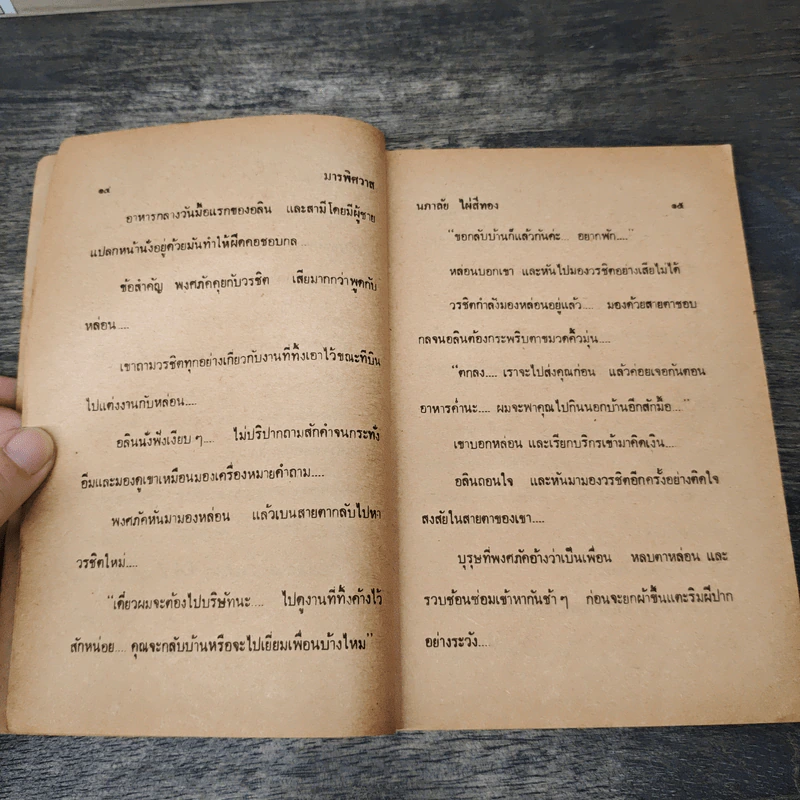 ๑๔ มารพิศวาส
อาหารกลางวันมื้อแรกของอลิน และสามีโดยมีผู้ชาย
แปลกหน้านั่งอยู่ด้วยมันทำให้ฝืดคอชอบกล...
ข้อสำคัญ พงศภัคคุยกับวรชิต เสียมากกว่าพูดกับ
หล่อน....
เขาถามวรชิตทุกอย่างเกี่ยวกับงานที่ทิ้งเอาไว้ขณะที่บิน
ไปแต่งงานกับหล่อน....
อลินนั่งฟังเงียบ ๆ.... ไม่ปริปากถามสักคำจนกระทั่ง
อิ่มและมองดูเขาเหมือนมองเครื่องหมายคำถาม....
พงศภัคหันมามองหล่อน แล้วเบนสายตากลับไปหา
วรชิตใหม่....
“เดี๋ยวผมจะต้องไปบริษัทนะ.... ไปดูงานที่ทิ้งค้างไว้
สักหน่อย.... คุณจะกลับบ้านหรือจะไปเยี่ยมเพื่อนบ้างไหม”
นภาลัย ไผ่สีทอง ๑๕
“ขอกลับบ้านก็แล้วกันค่ะ.... อยากพัก....”
หล่อนบอกเขา และหันไปมองวรชิตอย่างเสียไม่ได้
วรชิตกำลังมองหล่อนอยู่แล้ว.... มองด้วยสายตาชอบ
กลจนอลินต้องกระพริบตาขมวดคิ้วมุ่น....
“ตกลง.... เราจะไปส่งคุณก่อน แล้วค่อยเจอกันตอน
อาหารค่ำนะ.... ผมจะพาคุณไปกินนอกบ้านอีกสักมื้อ....”
เขาบอกหล่อน และเรียกบริกรเข้ามาคิดเงิน....
อลินถอนใจ และหันมามองวรชิตอีกครั้งอย่างติดใจ
สงสัยในสายตาของเขา....
บุรุษที่พงศภัคอ้างว่าเป็นเพื่อน หลบตาหล่อน และ
รวบช้อนซ่อมเข้าหากันช้า ๆ ก่อนจะยกผ้าขึ้นแตะริมฝีปาก
อย่างระวัง....